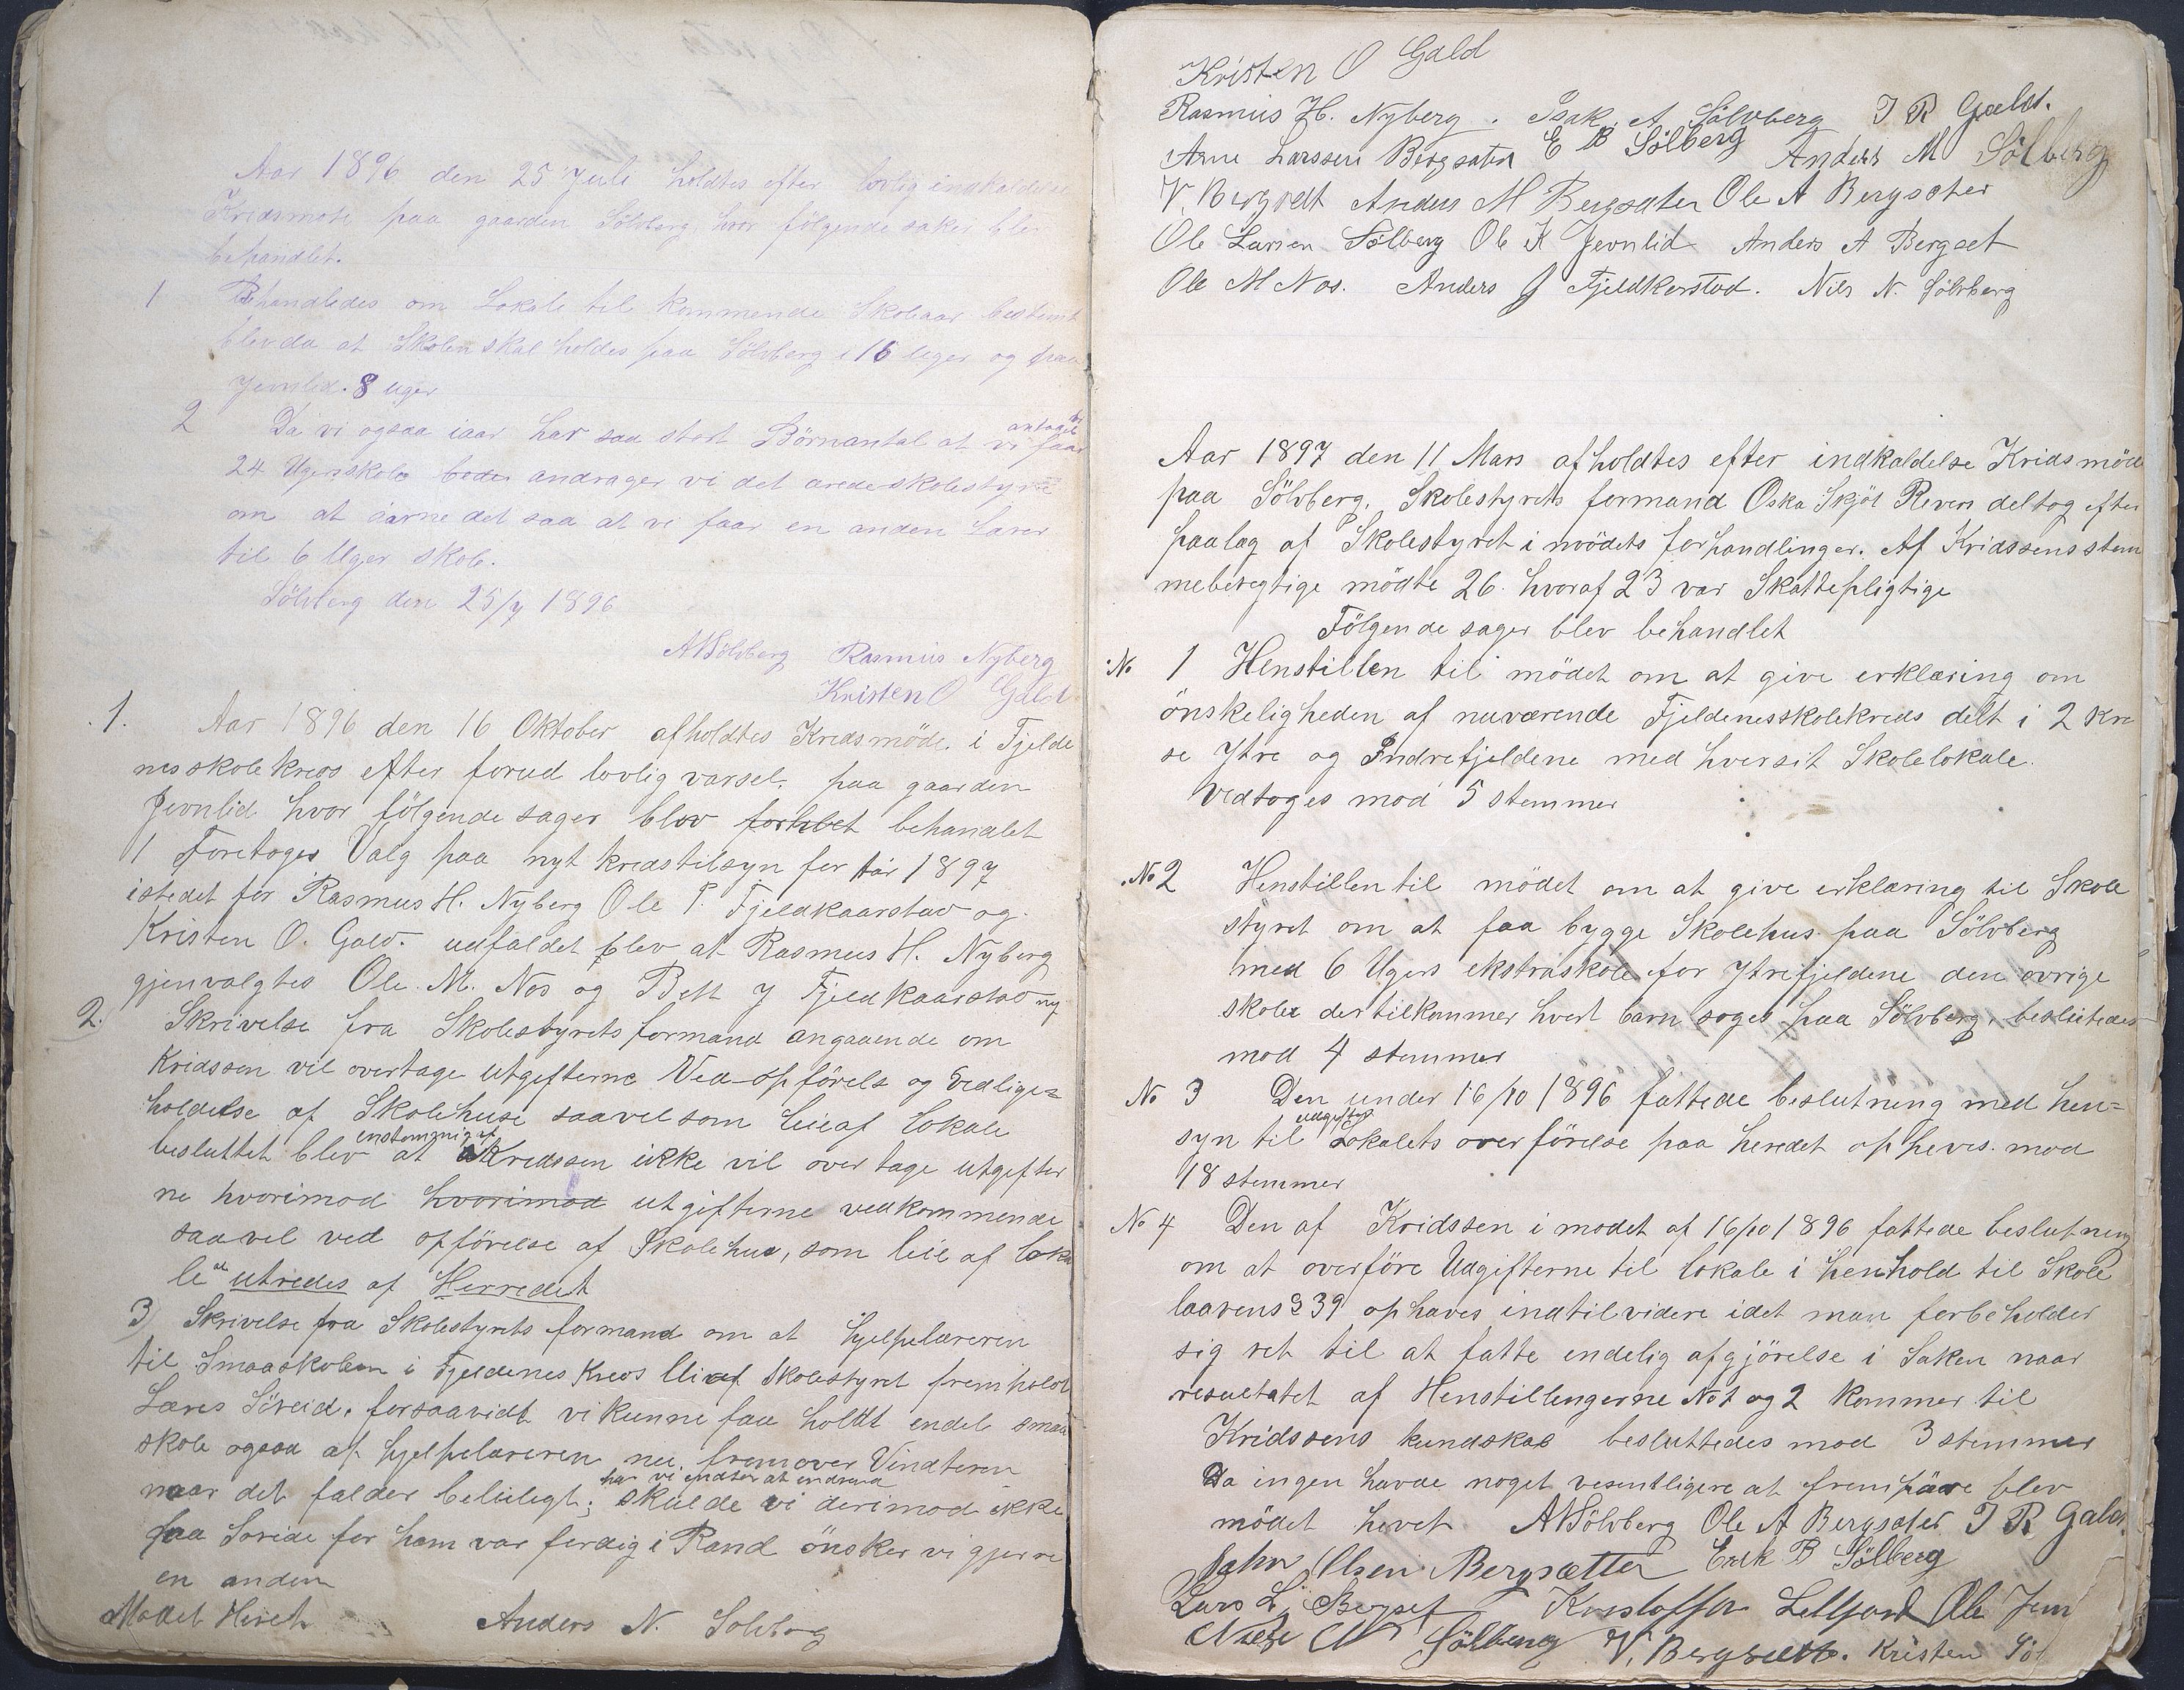 Aar 1896 den 25 Juli holdtes efter lovlig indkaldelse
Kredsmøte paa gaarden Sölvberg hvor følgende saker blev
behandlet.
1 Behandledes om Lokale til kommende Skoleaar bestemt
blev da at Skolen skal holdes paa Sölvberg i 16 uger og paa
Jevnlid. 8 uger
2 Da vi ogsaa iaar har saa stort Börnantal at vi antagelig faar
24 Ugersskole andrager vi det ærede skolestyre
om at det saa at vi faar en anden Lærer
til 6 Uger skole.
Sölvberg den 25/7 1896
A N Sölvberg Rasmus Nyberg
Kristen O Gald
1. Aar 1896 den 16 Oktober afholdtes Kredsmöde i Fjelde
nes skolekreds efter forud lovlig varsel. paa gaarden
Jevnlid hvor fölgende sager blev behandlet
1 Foretoges Valg paa nyt kredstilsyn for Aar 1897
istedet for Rasmus H. Nyberg Ole P. Fjeldkaarstad og
Kristen O. Gald. udfaldet blev at Rasmus H. Nyberg
gjenvalgtes Ole M. Nos og Bett J Fjeldkaarstad ny
2. Skrivelse fra Skolestyrets formand angaaende om
Kridssen vil overtage Utgifterne Ved opförels og Vedlige=
holdelse af Skolehuse saavelsom leie af lokale
besluttet blev enstemmigt at Kredssen ikke vil overtage utgifter
ne hvorimod hvorimod utgifterne vedkommende
saavel ved opförelse af Skolehus, som leie af loka
le utredes af Herredet
3) Skrivelse fra Skolestyrets formand om at hjelpelæreren
til Smaaskolen i Fjeldenes Kreds af Skolestyret fremholdt
Læres Söreid. forsaavidt vi kunne faa holdt endel smaa
skole ogsaa af hjelpelæreren nu fremover Vinteren
har vi indtet at indvend
naar det falder beleiligt; skulde vi derimod ikke
faa Soreide før ham var ferdig i Rand önsker vi gjerne
en anden
Mödet Hevet Anders N. Solvberg
Kristen O Gald
Rasmus H. Nyberg. Isak. A Sölvberg I R Gald.
Arne Larssen Bergsæter E B Sölberg Anders M Sölberg
V. Bergsett Anders M Bergsæter Ole A Bergsæter
Ole Larsen Sölberg Ole K Jevnlid Anders A Bergset
Ole M Nos. Anders J Fjeldkorstad. Nils N. Sölvberg
Aar 1897 den 11 Mars afholdtes efter indkaldelse Kridsmöde
paa Sölvberg. Skolestyrets formand Oska Skjöl Reven deltog efter
paalæg af Skolestyret i mödets forhandlinger. Af Kridssens stem
meberegtige mödte 26. hvoraf 23 var Skattepligtige
Fölgende sager blev behandlet
No 1 Henstillen til mödet om at give erklæring om
önskeligheden af nuværende Fjeldenesskolekreds delt i 2 Kre
se Ytre og Indrefjeldene med hver sit Skolelokale.
Vedtoges mod 5 stemmer
No 2 Henstillen til mödet om at give erklæring til Skole
styret om at faa bygge Skolehus paa Sölvberg
med 6 Ugers ekstraskole for Ytrefjeldene den øvrige
skole der tilkommer hvert barn söges paa Sölvberg, besluttedes
mod 4 stemmer
No 3 Den under 16/10 1896 fattede beslutning med hen=
syn til udgifter Lokalets overförelse paa heredet opheves. mod
18 stemmer
No 4 Den af Kridssen i mødet af 16/10 1896 fattede beslutning
om at overföre Udgifterne til lokale i henhold til Skole
laavens § 39 ophæves indtilvidere idet man forbeholder
sig ret til at fatte endelig afgjörelse i Saken naar
resultatet af Henstillingerne No 1 og 2 kommer til
Kridssens kundskab besluttedes mod 3 stemmer
Da ingen havde noget vesentligere at fremføre blev
mödet hevet A N Sölvberg Ole A Bergsæter I R Gald.
John Olsen Bergsætter Erik B Sölberg
Lars L. Bergset Kristoffer Ole Jevn
Niels N Sölberg V. Bergsett. Kristen Söl